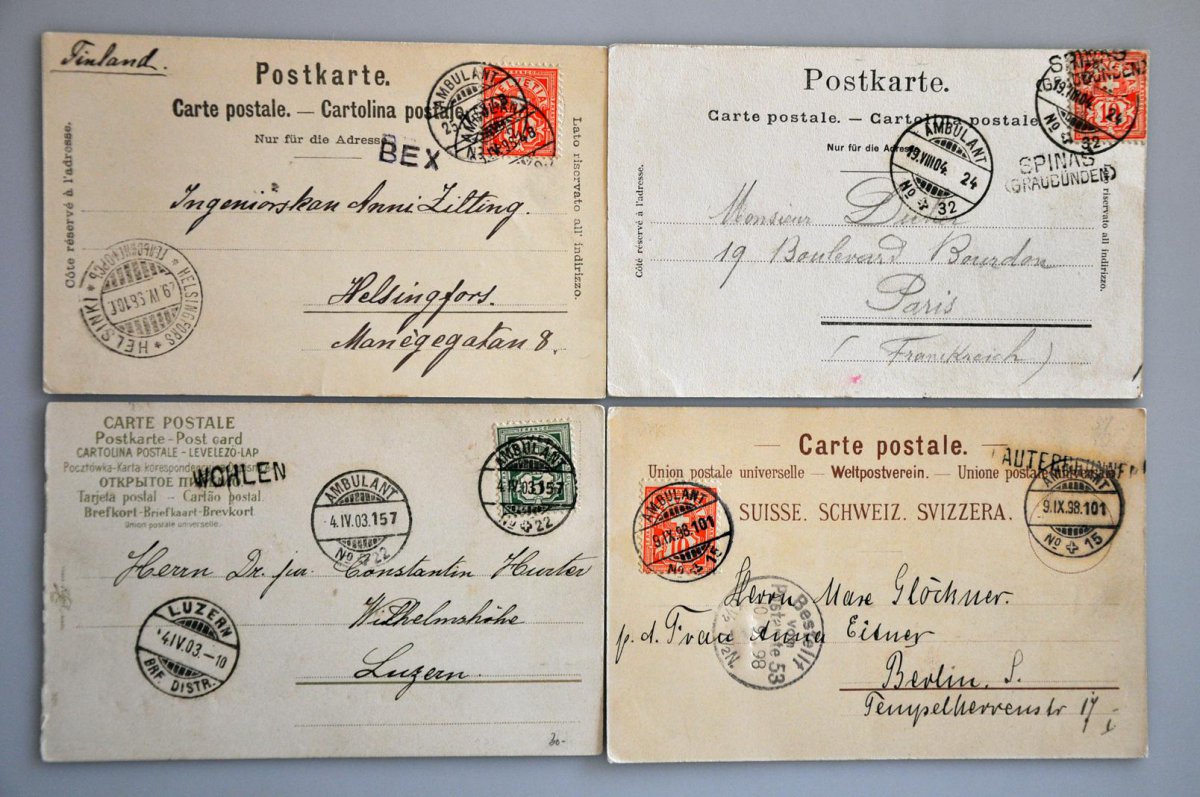 Finland.
Postkarte.
Carte postale. — Cartolina postale.
Nur für die Adresse
AMBULANT
AMBULANT
HELVETIA
FRANCO
BEX
Côté réservé à l'adresse.
Lato riservato all' indirizzo.
Anni
Helsingfors.
Manègegatan 8.
HELSINKI * HELSINGFORS *
Postkarte.
Carte postale. — Cartolina postale
Nur für die Adresse
SPINAS
(GRAUBÜNDEN)
19.VIII.04. 24
Nº 32
AMBULANT
19.VIII.04. 24
Nº 32
SPINAS
(GRAUBÜNDEN)
Côté réservé à l'adresse.
riservato all indirizzo.
Monsieur
19 Boulevard Bourdon
Paris
(Frankreich)
CARTE POSTALE
Postkarte - Post card
CARTOLINA POSTALE - LEVELEZŐ-LAP
Pocztówka - Karta korespondencyjna
ОТКРЫТОЕ
Tarjeta postal - Cartão postal.
Brefkort - Briefkaart - Brevkort
Union postale universelle.
WOHLEN
AMBULANT
4.IV.03.157
Nº 22
FRANCO
AMBULANT
4.IV.03.157
Nº 22
Herrn Dr. jur. Constantin Hurter
Wilhelmshöhe
Luzern.
LUZERN
4.IV.03.—10
BRF. DISTR.
30-
Carte postale.
Union postale universelle — Weltpostverein. — Unione postale
SUISSE. SCHWEIZ. SVIZZERA.
AMBULANT
9.IX.98.101
Nº 15
AMBULANT
9.IX.98.101
Nº 15
Bestellt
vom
Postamte 53
9. 98
Herrn Max Glöckner.
p. d. Frau Anna Eitner
Berlin. S.
Tempelherrenstr 17